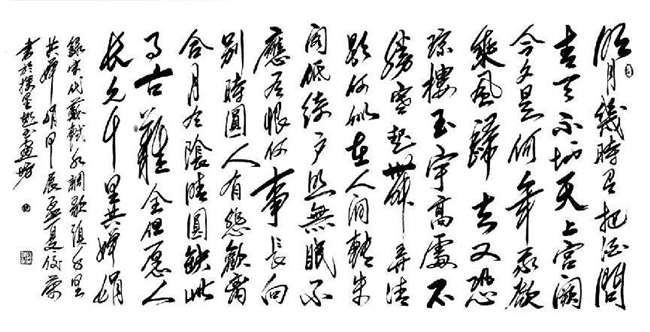 明月幾時有把酒問
青天不知天上宮闕
今夕是何年我欲
乘風歸去又恐
琼樓玉宇高處不
勝寒起舞弄清
影何似在人间轉朱
阁低綺户照無眠不
應有恨何事長向
别時圓人有悲歡離
合月有陰晴圓缺此
事古難全但愿人
長久千里共嬋娟
錄宋代蘇軾水調歌頭千里
共嬋娟甲辰孟夏
書於